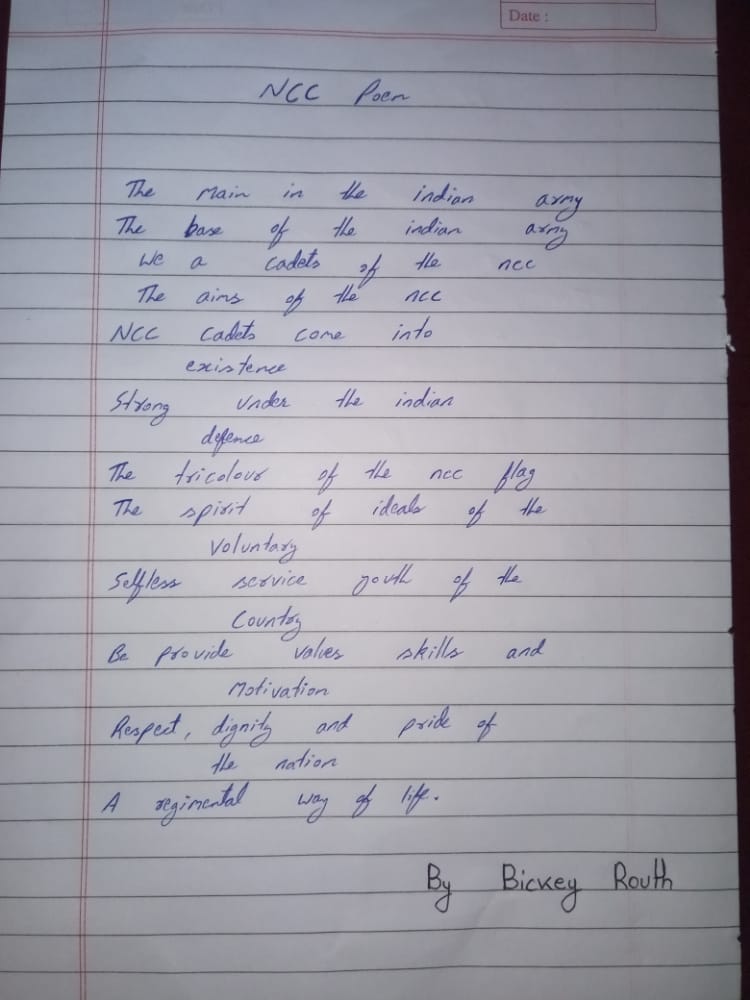 Date :
NCC Poem
The main in the indian army
The base of the indian army
We a cadets of the ncc
The aims of the ncc
NCC cadets come into
existence
Strong under the indian
defence
The tricolour of the ncc flag
The spirit of ideals of the
Voluntary
Selfless service youth of the
Country
Be provide values skills and
Motivation
Respect, dignity and pride of
the nation
A regimental way of life.
By Bickey Routh